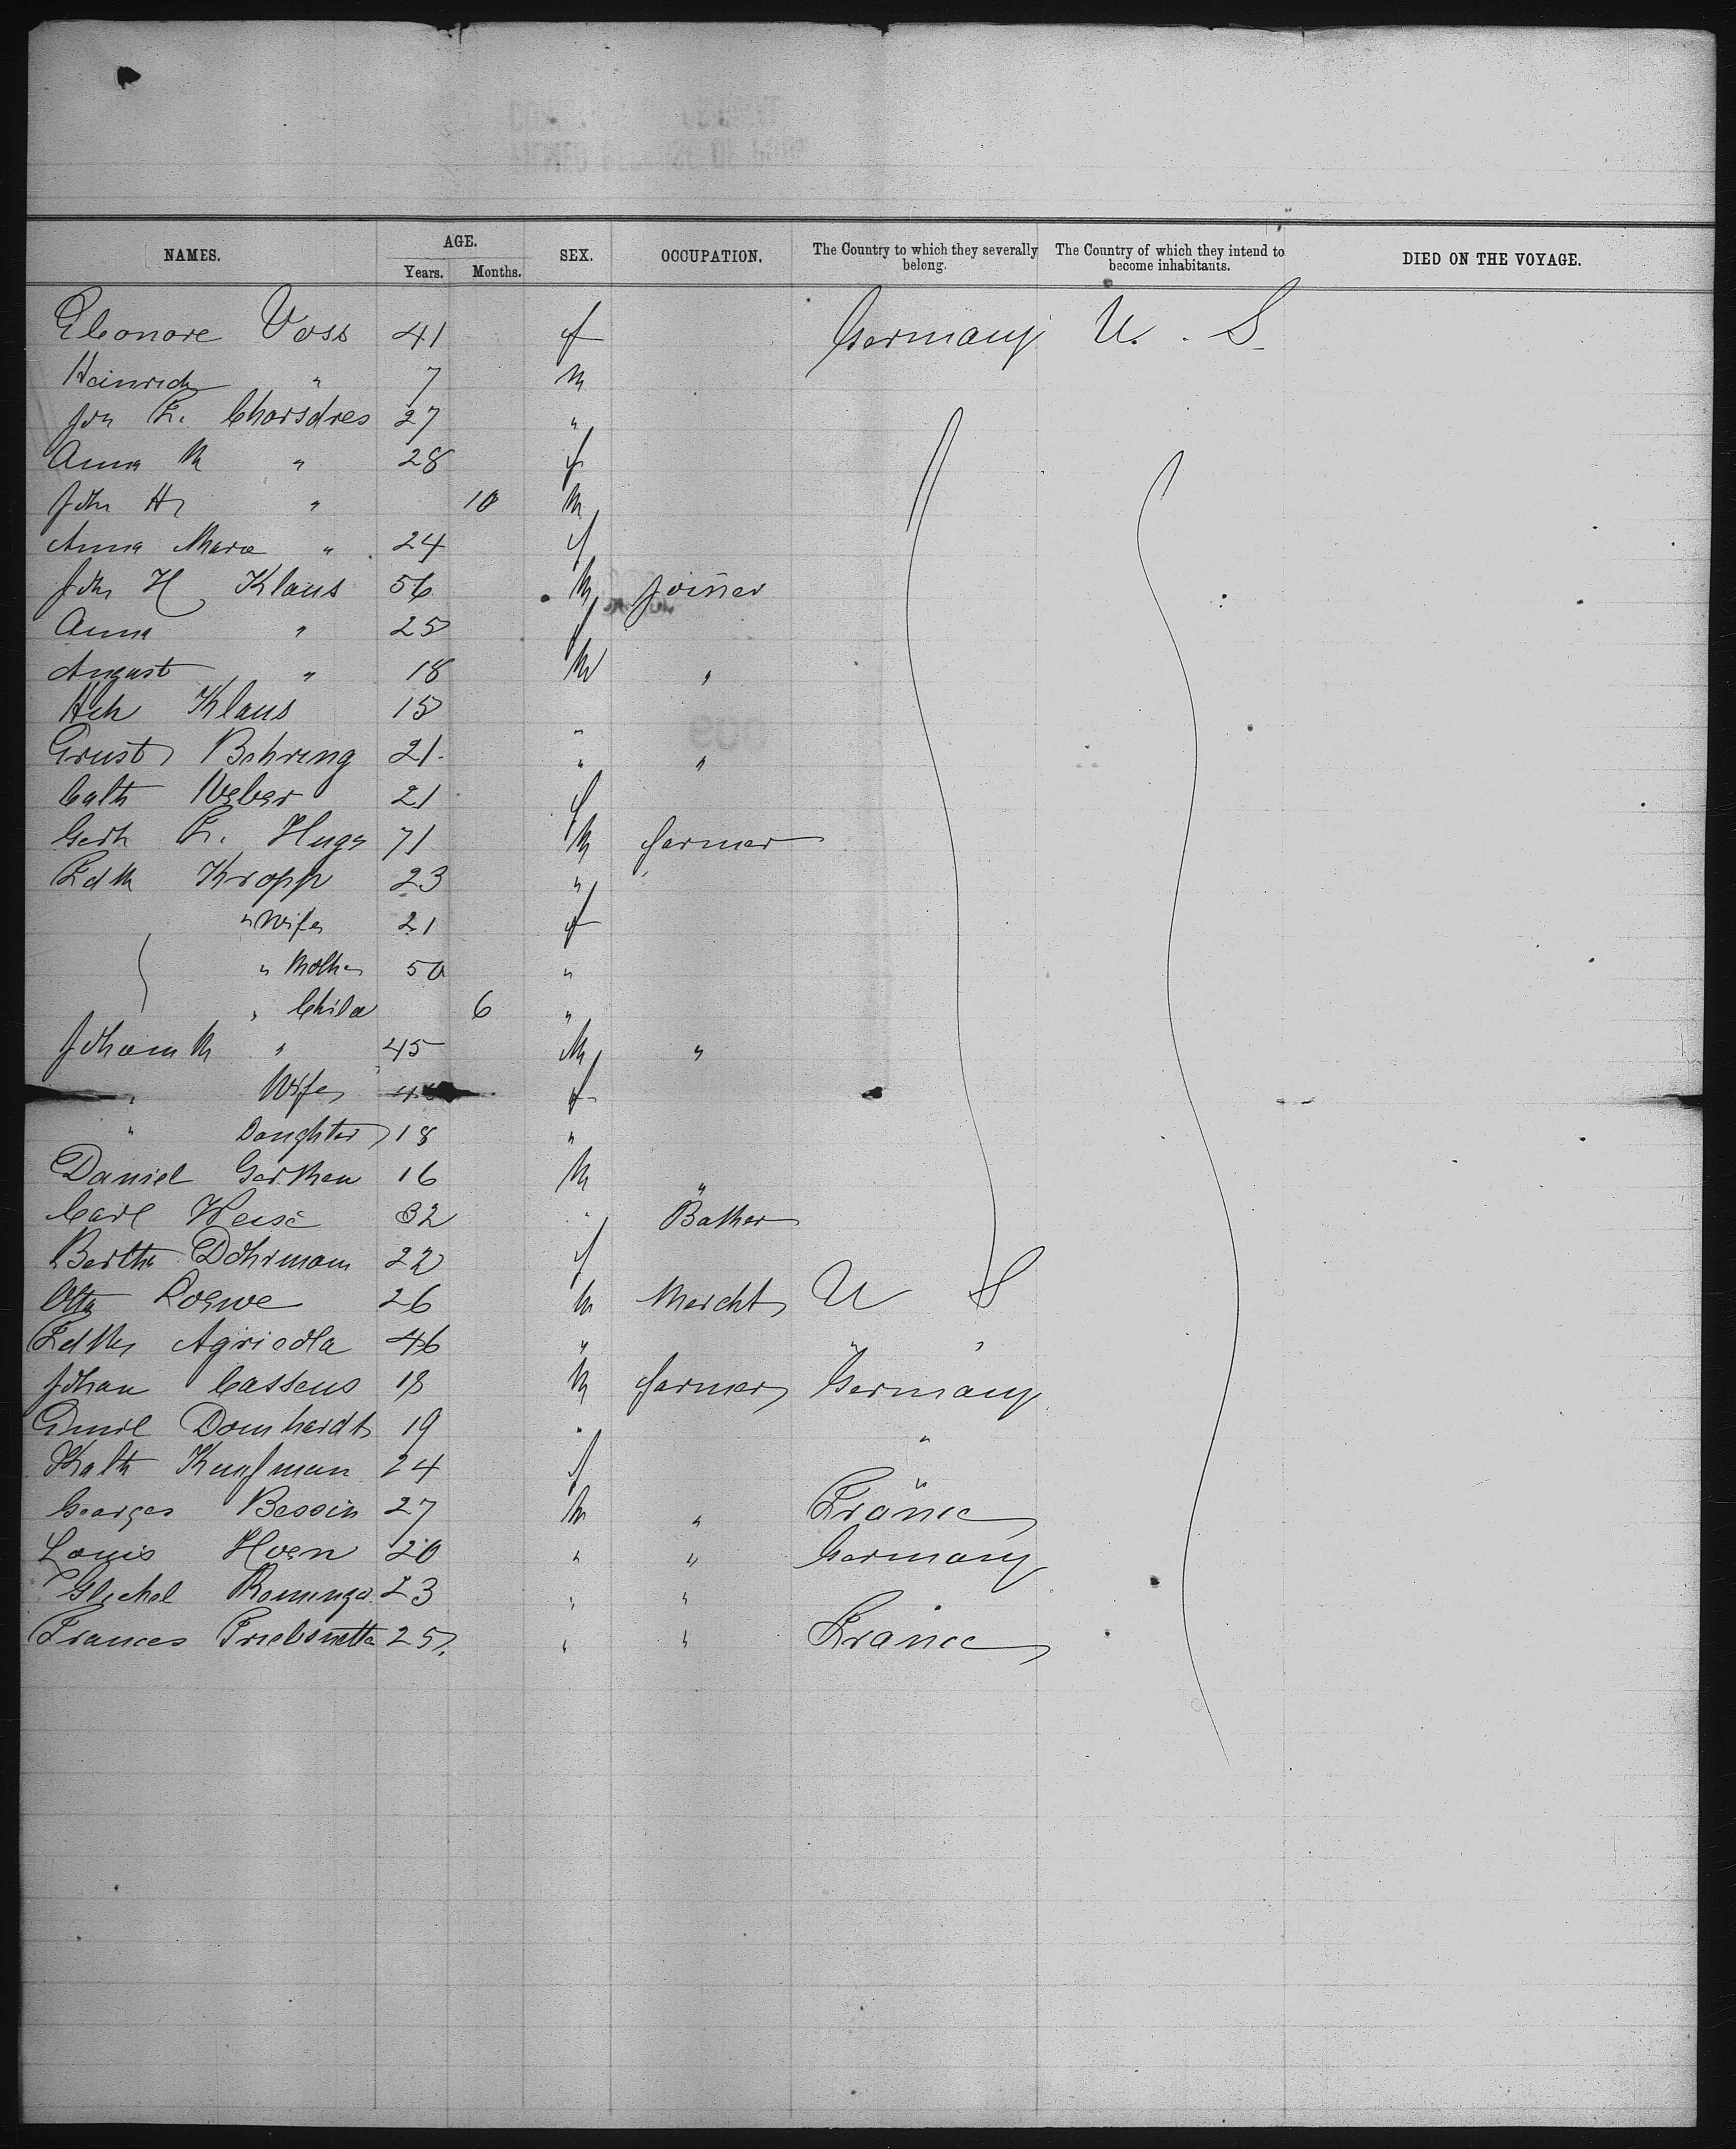 NAMES. AGE. SEX. OCCUPATION. The Country to which they severally belong. The Country of which they intend to become inhabitants. DIED ON THE VOYAGE.
Years. Months.
Eleonore Voss 41 f Germany U. S.
Heinrich " 7 M
Joh L. 27 "
Anna M " 28 f
John H " 10 M
Anna Marie " 24 f
Joh H Klaus 56 M Joiner
Anna " 25 f
August " 18 M "
Hch Klaus 15 "
Ernst Behring 21 " "
Cath Weber 21 f
Gerh L. Huge 71 M farmer
Kropp 23 "
" Wife 21 f
" Mother 50 "
" Child 6 "
Johann M " 45 M "
" Wife f
" Daughter 18 "
Daniel Gerken 16 M "
Carl Weise 32 " Baker
Bertha Dohrmann 22 f
Otto Loewe 26 M Mercht U S
Agricola 46 " " "
Johan Cassens 18 M farmer Germany
Emil Domhardt 19 " "
Kath Kaufman 24 f "
Georges Bessin 27 M " France
Louis Hoen 20 " " Germany
23 " "
Frances 25 " " France